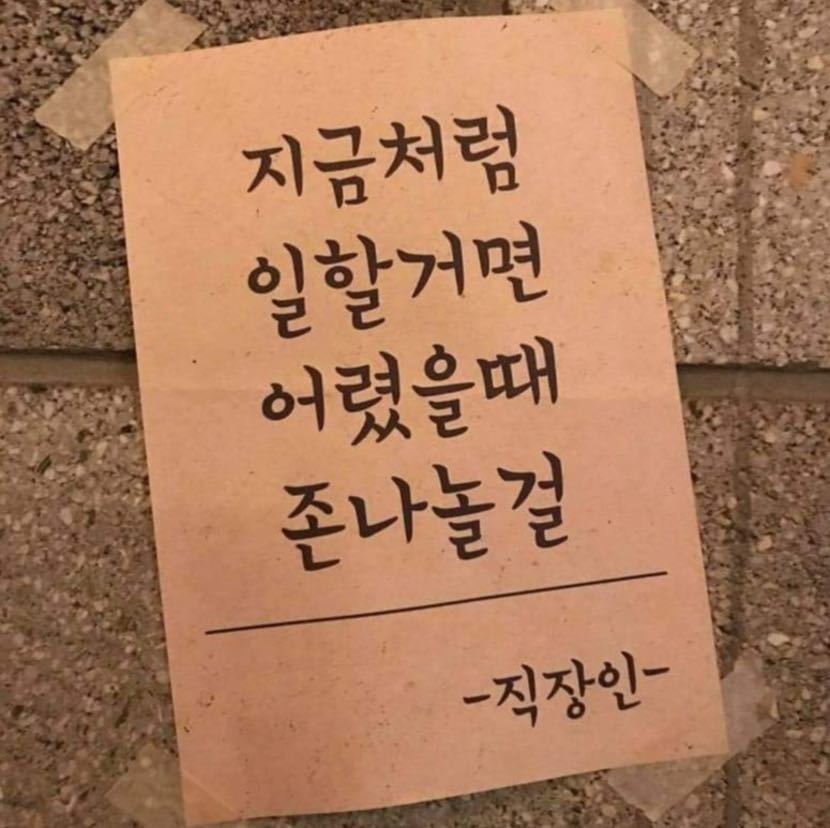 지금처럼
일할거면
어렸을때
존나놀걸
-직장인-